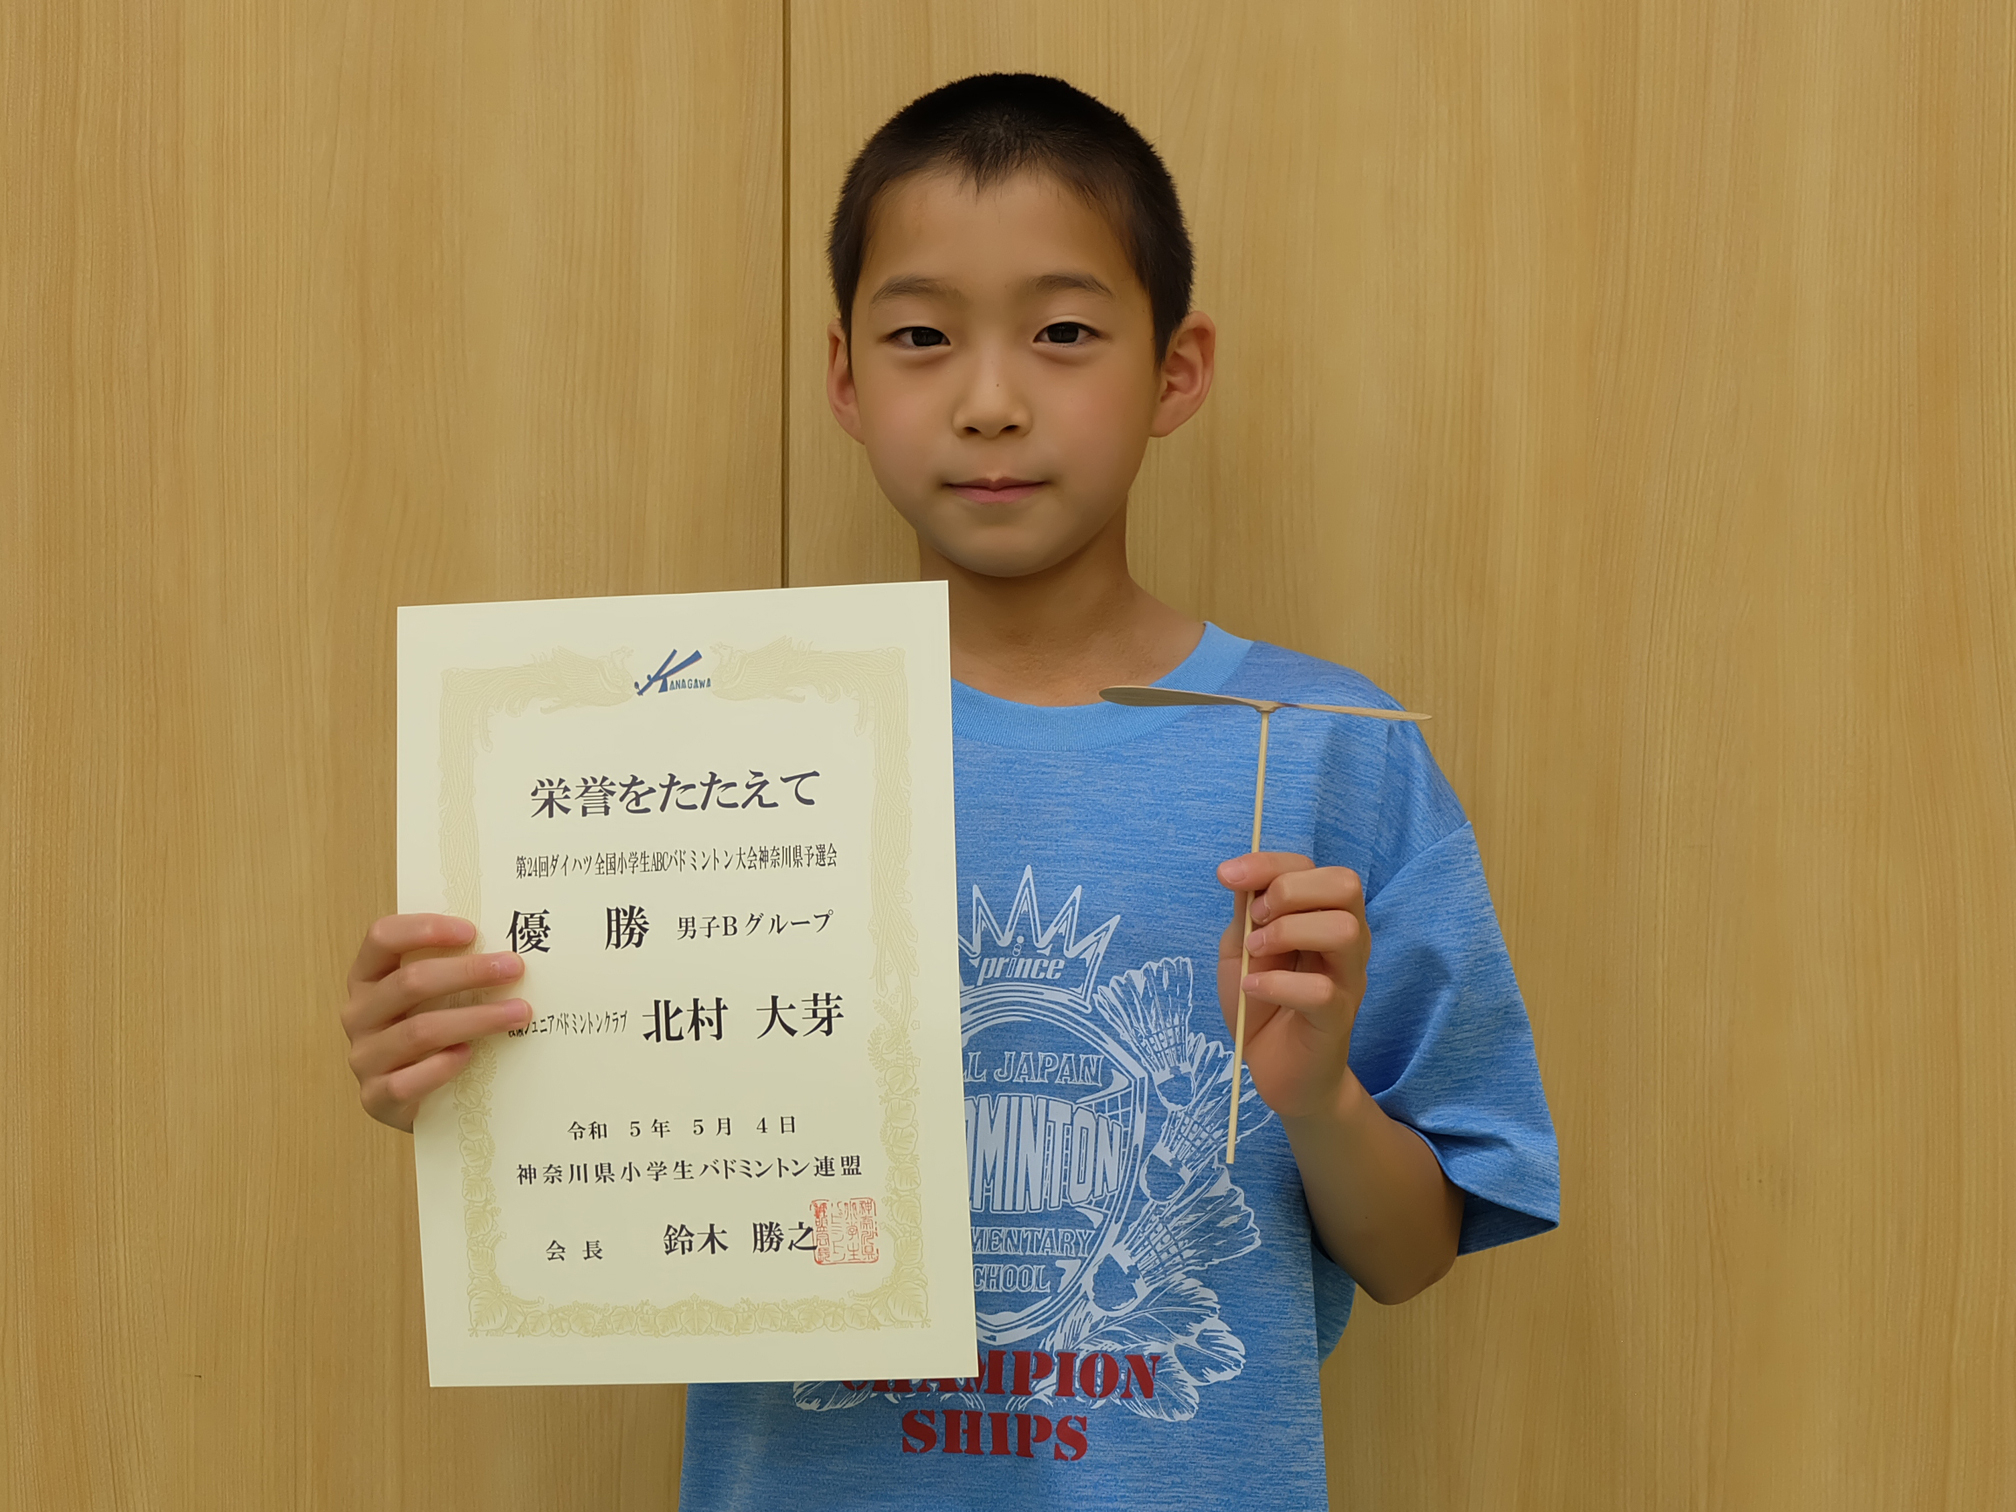 KANAGAWA
栄誉をたたえて
第24回ダイハツ全国小学生ABCバドミントン大会神奈川県予選会
優 勝 男子Bグループ
ジュニアバドミントンクラブ 北村 大芽
令和 5年 5月 4日
神奈川県小学生バドミントン連盟
会 長 鈴木 勝之
prince
LL JAPAN
DMINTON
MENTARY
CHOOL
CHAMPION
SHIPS